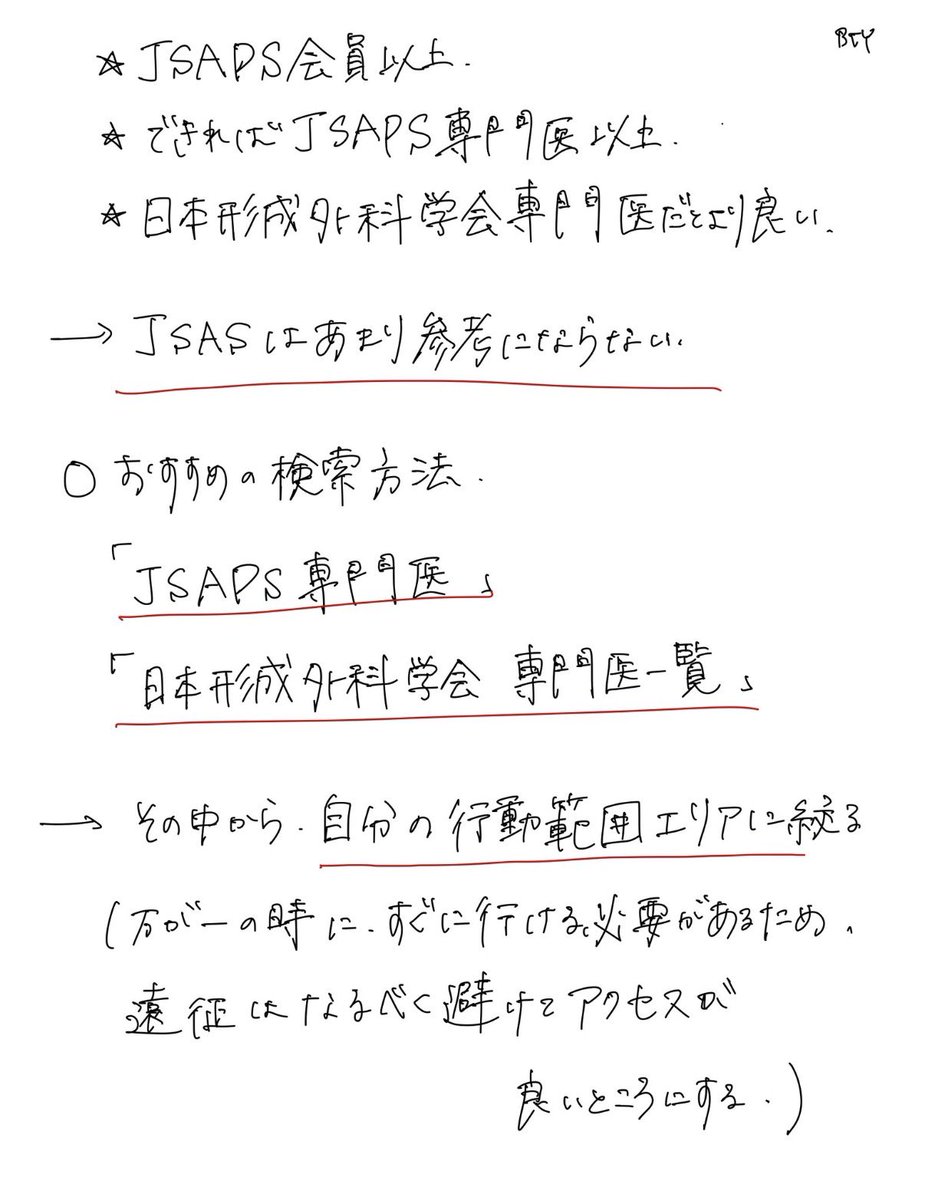 BTY
☆ JSAPS会員以上.
☆ できればJSAPS専門医以上.
☆ 日本形成外科学会専門医だとより良い.
→ JSASはあまり参考にならない.
○ おすすめの検索方法.
「JSAPS専門医」
「日本形成外科学会 専門医一覧」
→ その中から.自分の行動範囲エリアに絞る
(万が一の時に.すぐに行ける必要があるため、
遠征はなるべく避けてアクセスが
良いところにする.)